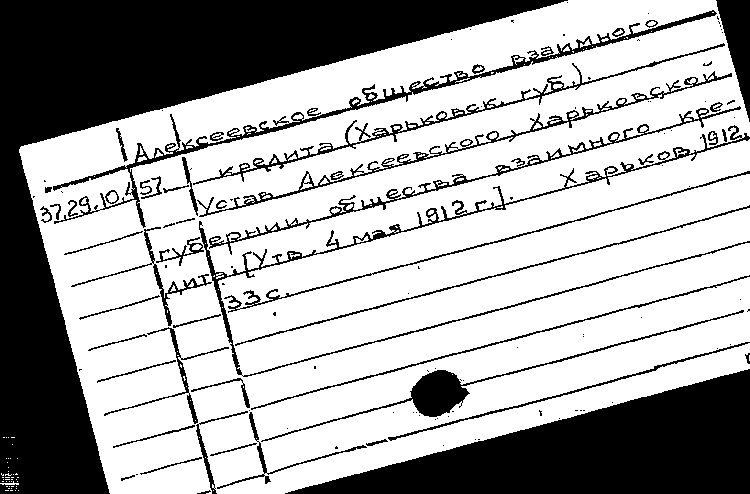 Алексеевское общество взаимного
кредита (Харьковск. губ.).
37.29.10.457. Устав Алексеевского, Харьковской
губернии, общества взаимного кре-
дита: [Утв. 4 мая 1912 г.]. Харьков, 1912.
33 с.